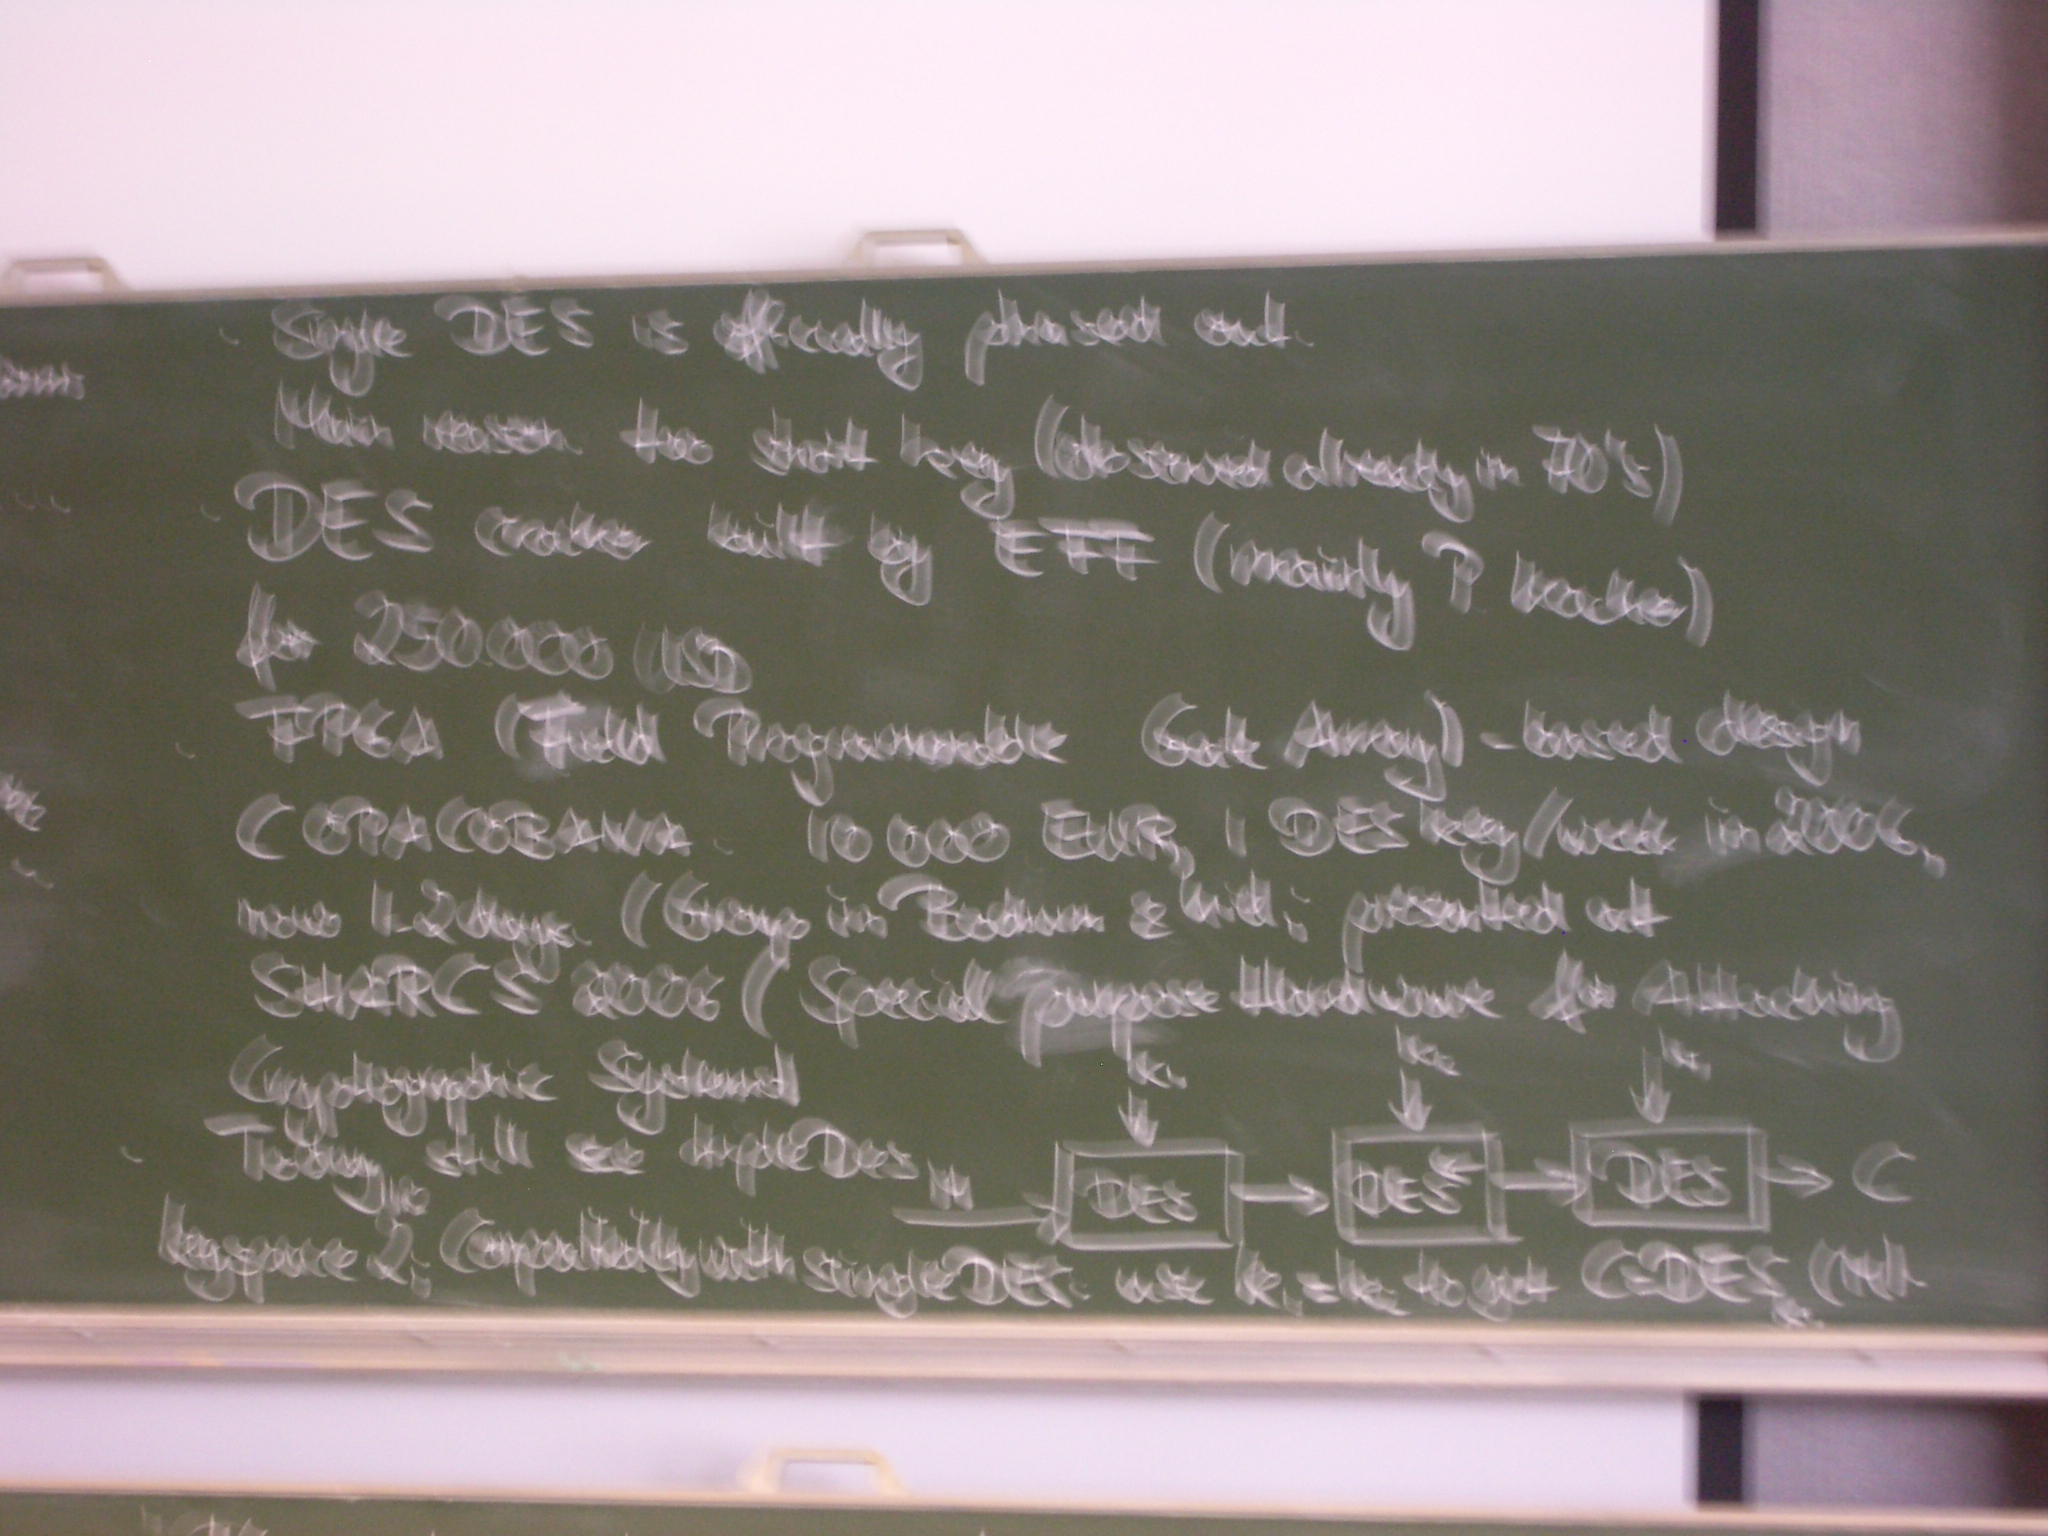 Single DES is officially phased out.
Main reason too short key (observed already in 70's)
DES cracker built by EFF (mainly P. Kocher)
for 250000 USD
FPGA (Field Programmable Gate Array) - based design
COPACOBANA 10 000 EUR, 1 DES key/week in 2006,
now 1-2 days. (Group in Bochum & Kiel; presented at
SHARCS 2006 (Special purpose Hardware for Attacking
Cryptographic Systems)
k1 k2 k1
Today still see triple DES
M DES DES DES C
keyspace 2. Compatibility with single DES: use k1=k2 to get C=DES (M).